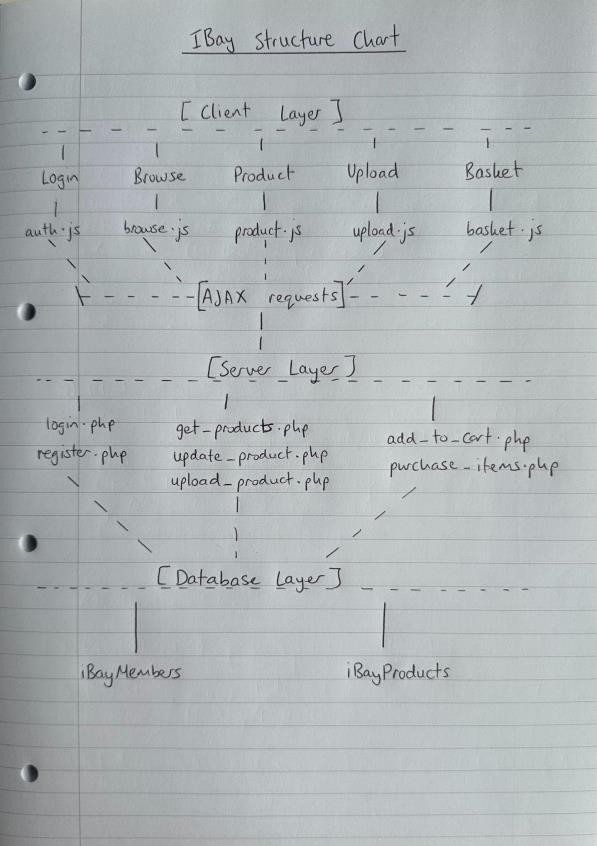 IBay Structure Chart
[Client Layer]
Login Browse Product Upload Basket
auth.js browse.js product.js upload.js basket.js
[AJAX requests]
[Server Layer]
login.php
register.php
get_products.php
update_product.php
upload_product.php
add_to_cart.php
purchase_items.php
[Database Layer]
iBayMembers iBayProducts